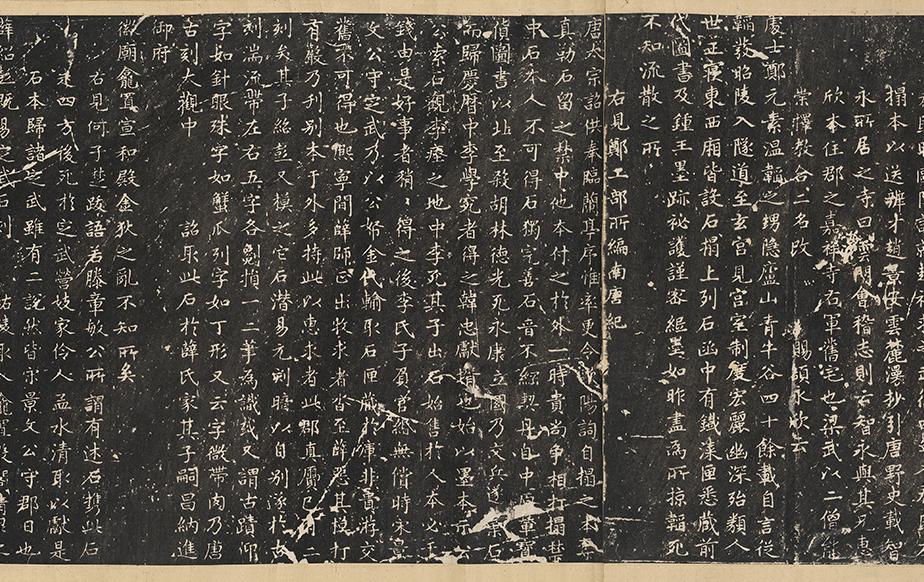 搨本以送辨才趙景安雲麓漫抄引唐野史載智
永所居之寺曰雲門會稽志則云智永與其兄惠
欣本住郡之嘉祥寺右軍舊宅也梁武以二僧能
崇釋教合二名改 賜額永欣云
處士鄭元素溫韜之甥隱廬山青牛谷四十餘載自言從
韜發昭陵入隧道至玄宮見宮室制度宏麗幽深殆類人
世正寢東西廂皆設石榻上列石函中有鐵漆匣悉藏前
代圖書及鍾王墨跡祕護謹密紙墨如昨盡為所掠韜死
不知流散之所
右見鄭工部所編南唐紀
唐太宗詔供奉臨蘭亭序惟率更令歐陽詢自搨之本奪
真勒石留之禁中他本付之於外一時貴尚爭相打搨禁
中石本人不可得石獨完善石晉不綱契丹自中原輦寶
貨圖書以北至殺胡林德光死永康立國乃交兵遂棄石
而歸慶曆中李學究者得之韓忠獻婿也始以墨本示公
公索石觀李瘞之地中李死其子出石始售於人本必千
錢由是好事者稍稍得之後李氏子負官緡無償時宋景
文公守定武乃以公帑金代輸取石匣藏於庫非貴游交
舊不可得也熙寧間薛師正出牧求者沓至薛惡其模打
有嚴乃刊別本于外多持此以惠求者此郡真贗已有二
刻矣其子紹彭又模之它石潛易元刻暗以自別遂於古
刻湍流帶左右五字各劖損一二筆為識或又謂古蹟仰
字如針眼殊字如蟹爪列字如丁形又云字微帶肉乃唐
古刻大觀中 詔取此石於薛氏家其子嗣昌納進
御府
徽廟龕置宣和殿金狄之亂不知所矣
右見何子楚跋語若滕章敏公所謂有述石攜此石
走四方後死於定武營妓家伶人孟水清取以獻是
石本歸諸定武雖有二說然皆宗景文公守郡日也
薛紹彭既易定武石刻